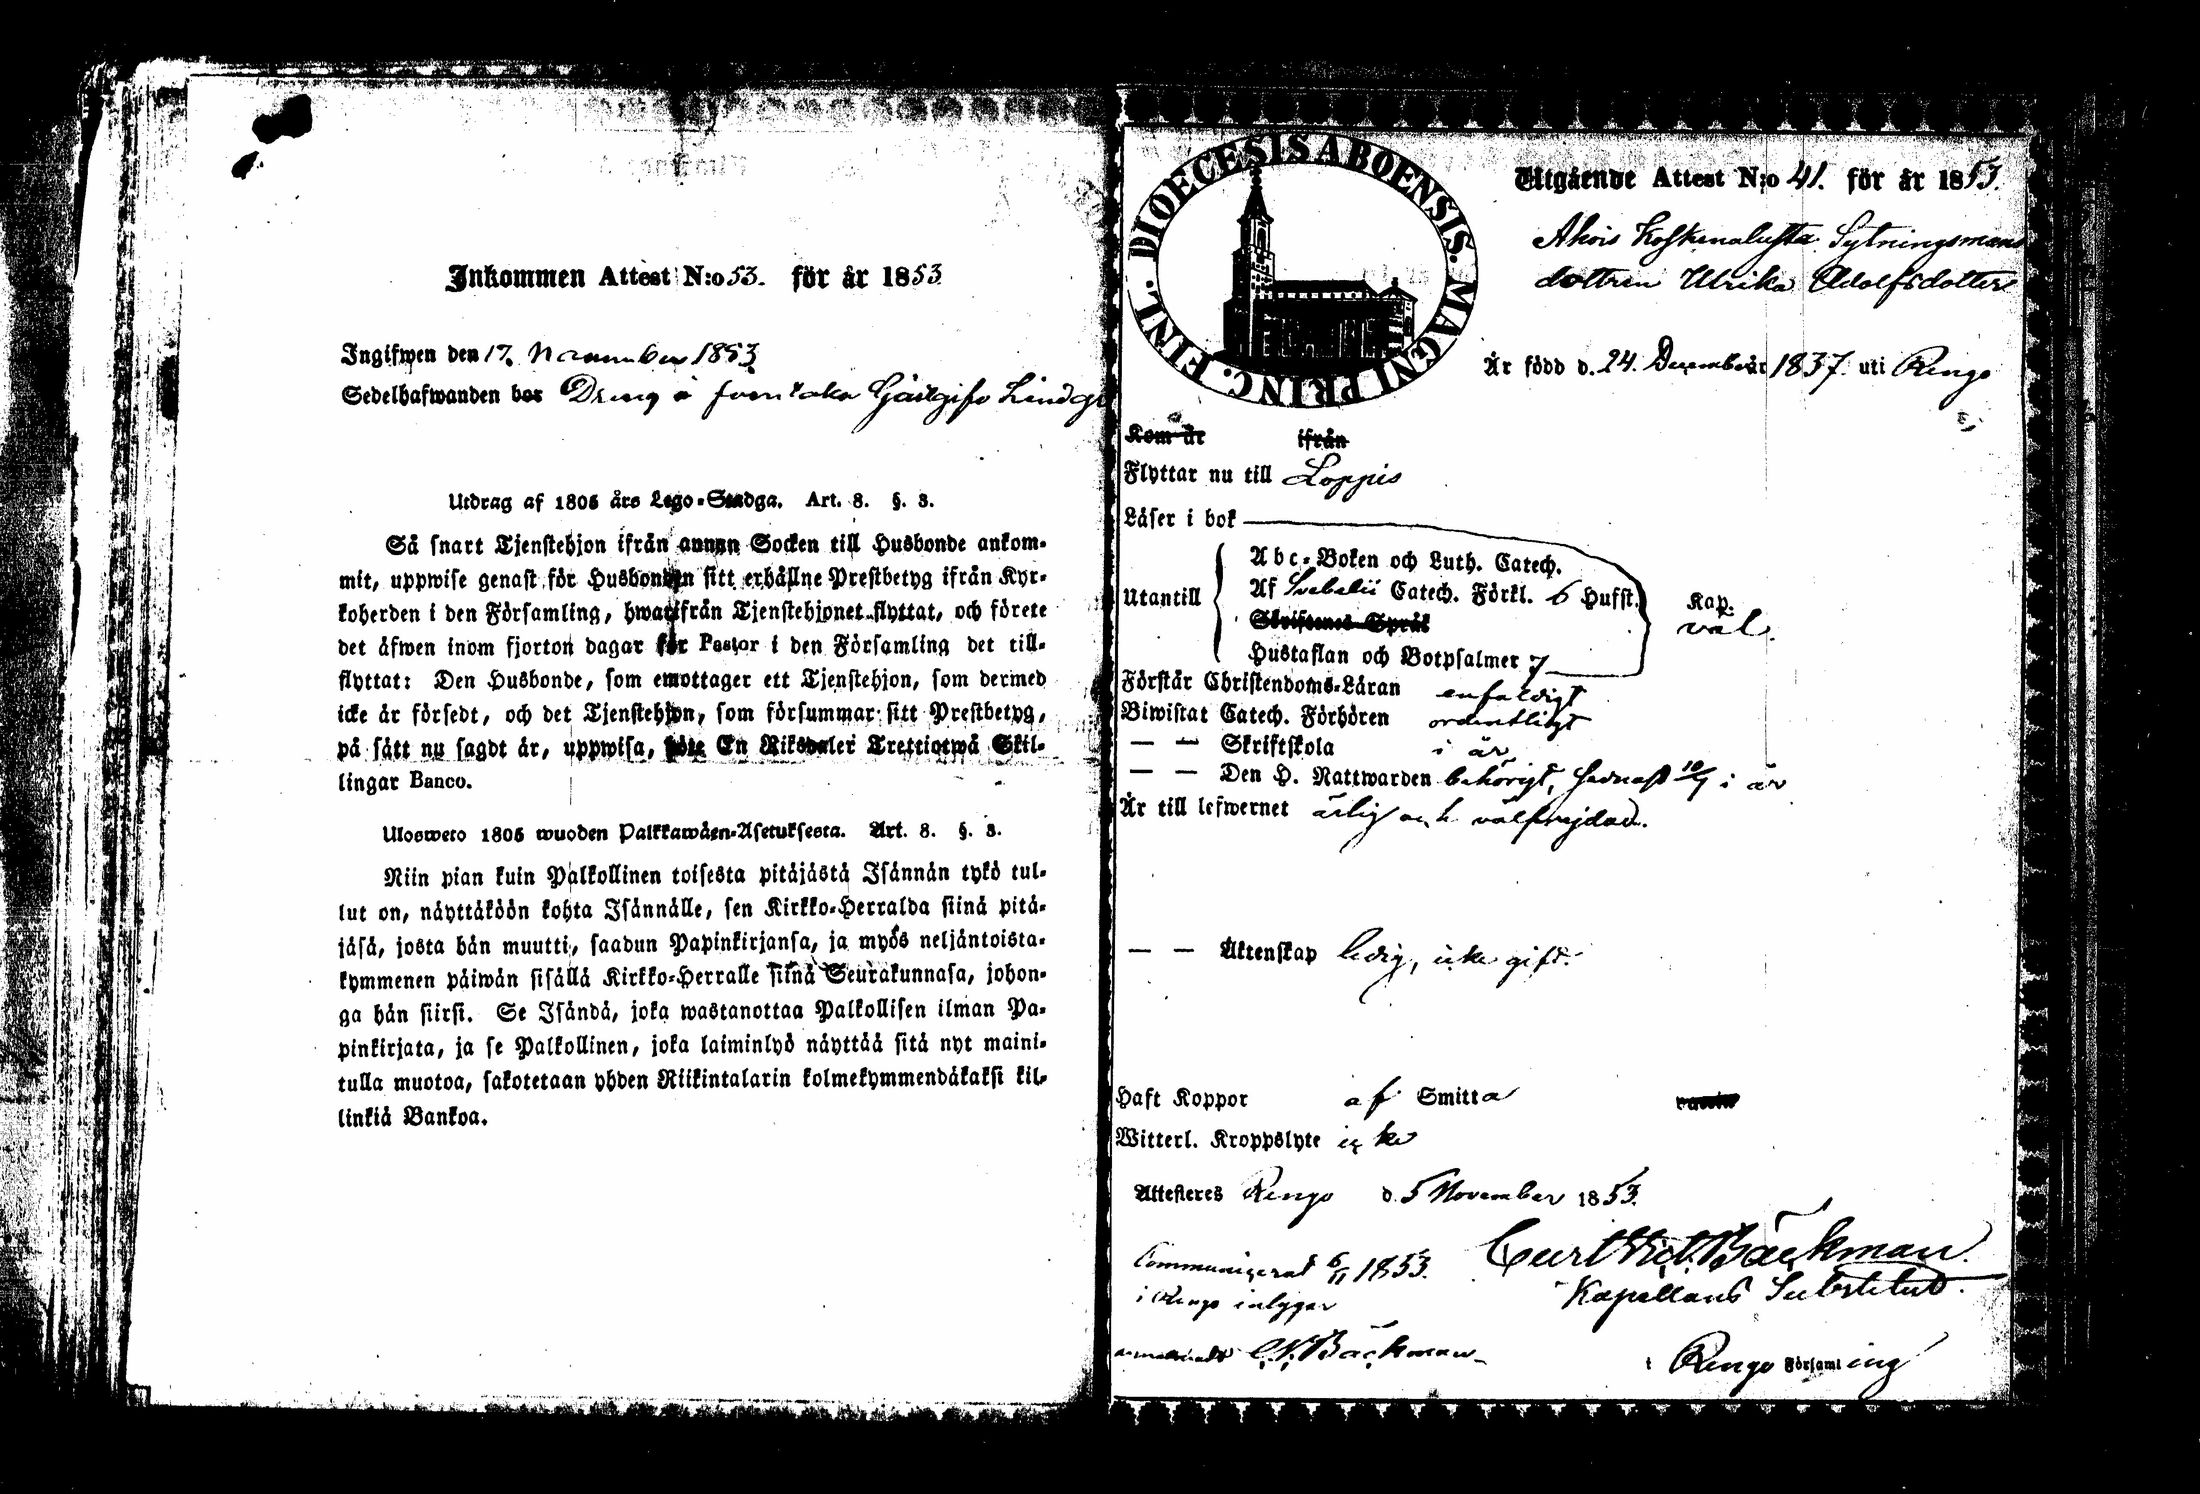 Inkommen Attest N:o 53. för år 1853
Ingifwen den 17. November 1853
Sedelhafwanden bor Dreng å
Utdrag af 1805 års Lego-Stadga. Art. 8. §. 3.
Så snart Tjenstehjon ifrån annan Socken till Husbonde ankom-
mit, uppwise genast för Husbonden sitt erhållne Prestbetyg ifrån Kyr-
koherden i den Församling, hwarifrån Tjenstehjonet flyttat, och förete
det äfwen inom fjorton dagar för Pastor i den Församling det till-
flyttat: Den Husbonde, som emottager ett Tjenstehjon, som dermed
icke är försedt, och det Tjenstehjon, som försummar sitt Prestbetyg,
på sätt nu sagdt är, uppwisa, böte En Riksdaler Trettiotwå Skil-
lingar Banco.
Ulosweto 1805 wuoden Palkkawäen-Asetuksesta. Art. 8. §. 3.
Niin pian kuin Palkollinen toisesta pitäjästä Isännän tykö tul-
lut on, näyttäköön kohta Isännälle, sen Kirkko-Herralda siinä pitä-
jäsä, josta hän muutti, saadun Papinkirjansa, ja myös neljäntoista-
kymmenen päiwän sisällä Kirkko-Herralle siinä Seurakunnasa, johon-
ga hän siirsi. Se Isändä, joka wastanottaa Palkollisen ilman Pa-
pinkirjata, ja se Palkollinen, joka laiminlyö näyttää sitä nyt maini-
tulla muotoa, sakotetaan yhden Riikintalarin kolmekymmendäkaksi kil-
linkiä Bankoa.
DIOECESIS ABOENSIS. MAGNI PRINC. FINL.
Utgående Attest N:o 41. för år 1853.
Ahois Koskenalusta Sytningsmans
dottren Ulrika Adolfsdotter
Är född d. 24. December 1837. uti Rengo
Kom år ifrån
Flyttar nu till Loppis
Läser i bok
Utantill
Abc-Boken och Luth. Catech.
Af Svebelii Catech. Förkl. 6 Hufst. Kap.
väl.
Skriftenes Språk
Hustaflan och Botpsalmer 7
Förstår Christendoms-Läran enfaldigt
Biwistat Catech. Förhören ordentligt
— — Skriftskola i år
— — Den H. Nattwarden behörigt, sednast 10/7 i år
Är till lefwernet ärlig och välfrejdad.
— — Äktenskap ledig, icke gift.
Haft Koppor af Smitta vaccin
Witterl. Kroppslyte icke
Attesteres Rengo d. 5 November 1853.
Curt Vict. Bäckman.
Kapellans Substitut.
Communicerat 6/11 1853.
i Rengo
C. V. Bäckman
i Rengo Församling